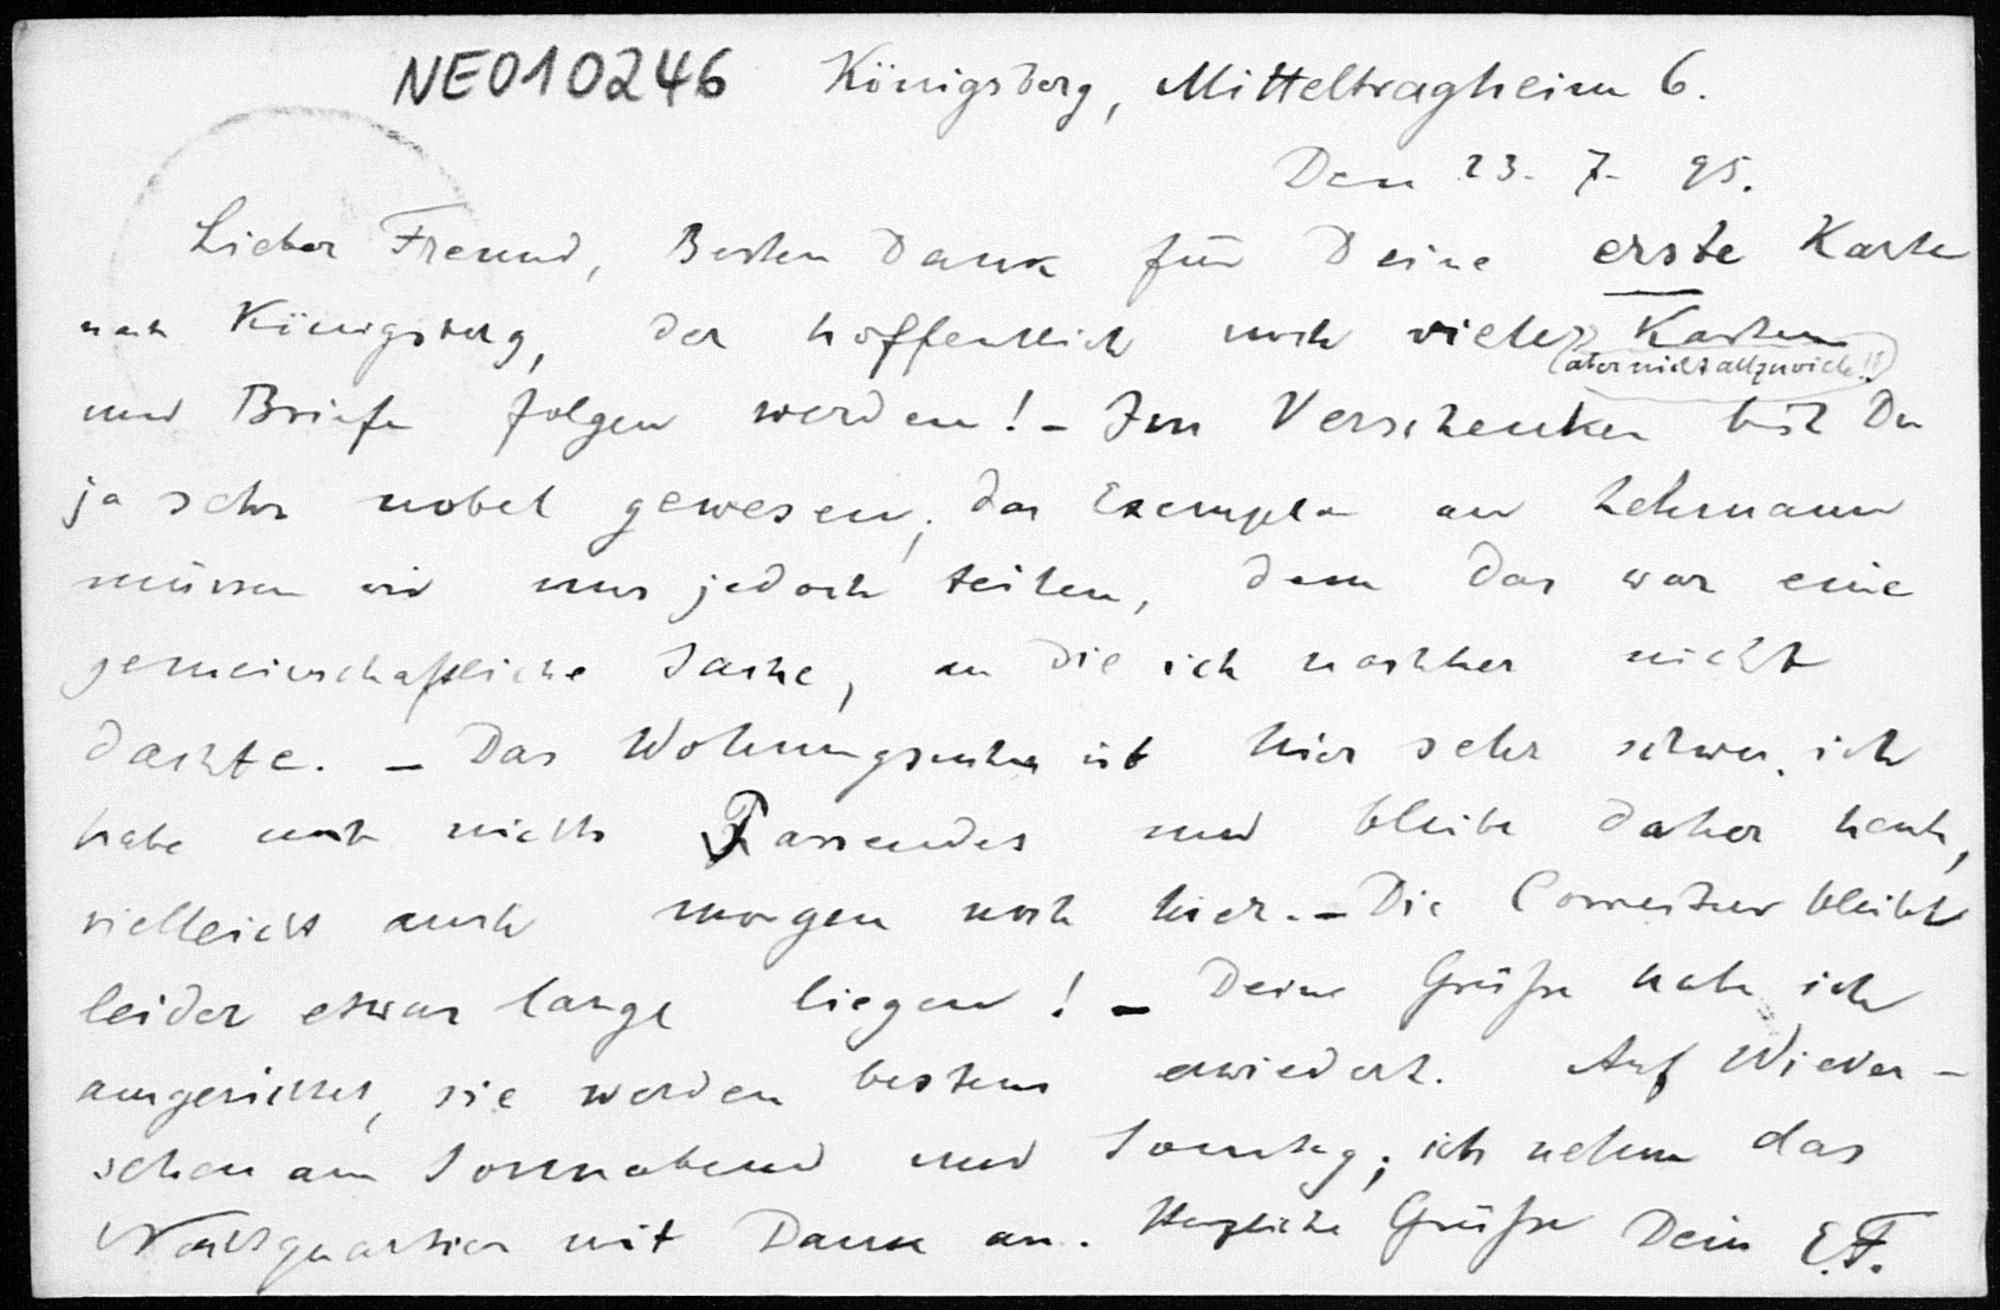 NE010246 Königsberg, Mitteltragheim 6.
Den 23. 7. 95.
Lieber Freund, Besten Dank für Deine erste Karte
nach Königsberg, der hoffentlich noch viele Karten
(aber nicht allzuviele!!)
und Briefe folgen werden! - Im Verschenken bist Du
ja sehr nobel gewesen; das Exemplar an Lehmann
müssen wir uns jedoch teilen, denn das war eine
gemeinschaftliche Sache, an die ich nachher nicht
dachte. - Das Wohnungsuchen ist hier sehr schwer, ich
habe noch nichts Passendes und bleibe daher heute,
vielleicht auch morgen noch hier. - Die Correctur bleibt
leider etwas lange liegen! - Deine Grüße habe ich
ausgerichtet, sie werden bestens erwiedert. Auf Wieder-
sehen am Sonnabend und Sonntag; ich nehme das
Nachtquartier mit Dank an. Herzliche Grüße Dein E.F.